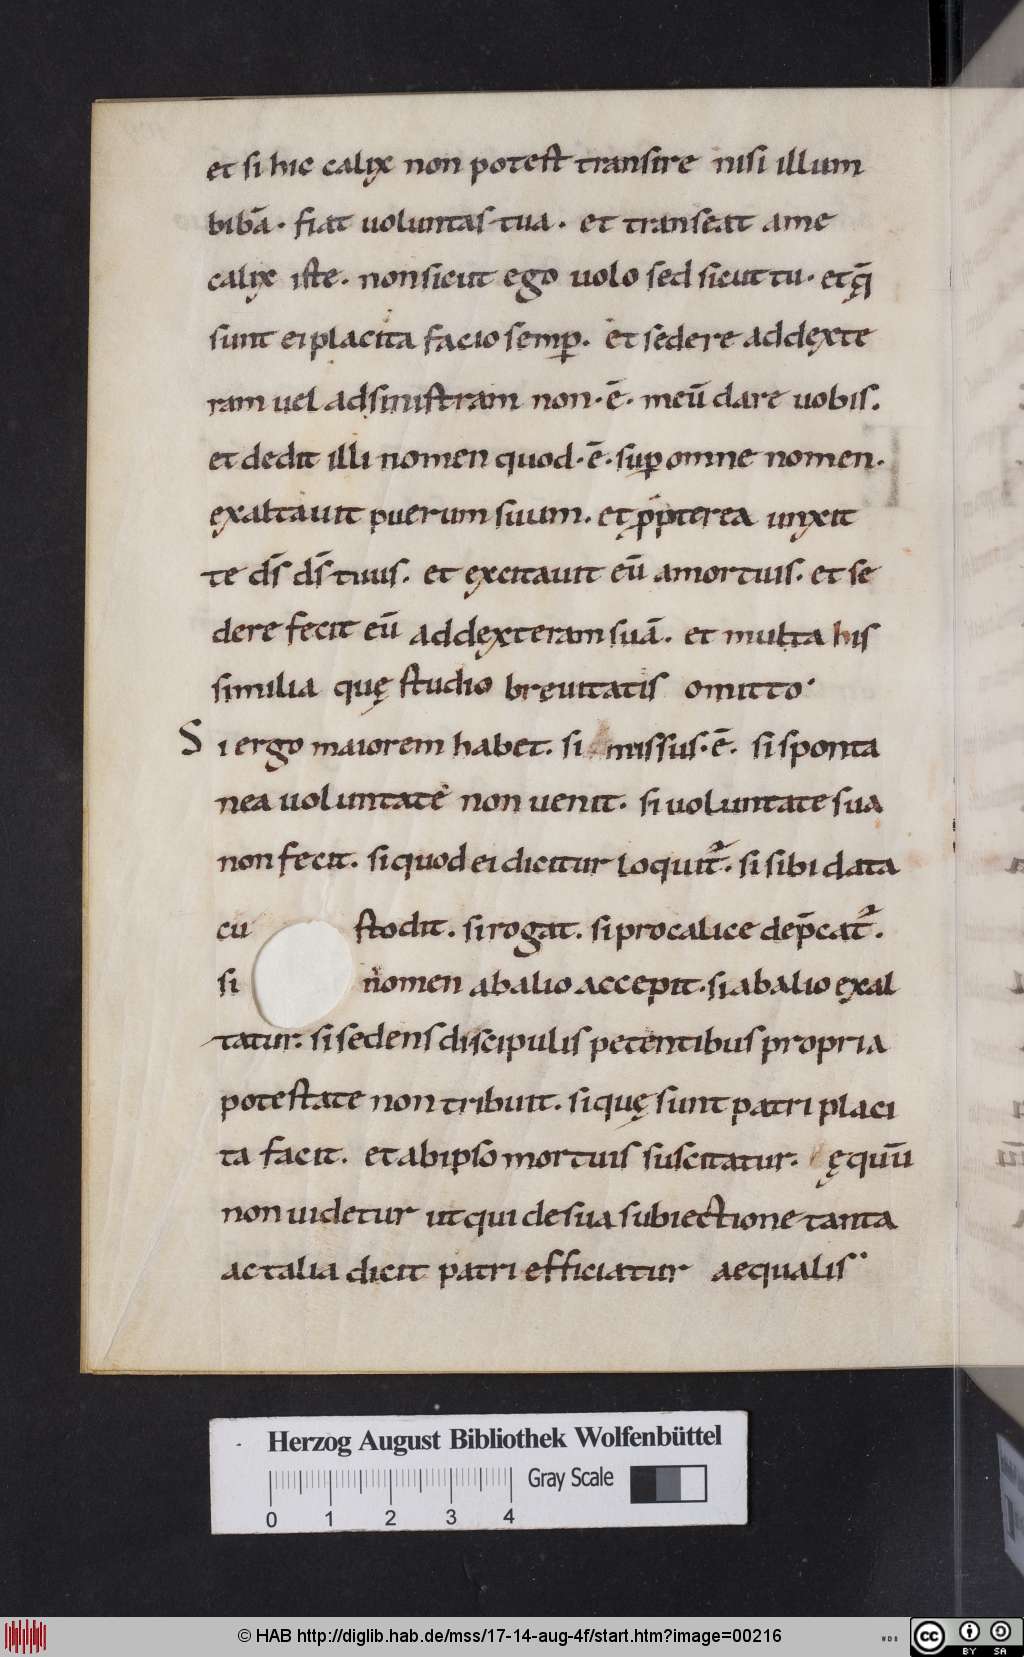 et si hic calix non potest transire nisi illum
bibā· fiat uoluntas tua· et transeat ame
calix iste· non sicut ego uolo sed sicut tu· et q̄
sunt ei placita facio semꝑ. et sedere ad dexte
ram uel ad sinistram non·ē· meū dare uobis.
et dedit illi nomen quod·ē·suꝑ omne nomen·
exaltauit puerum suum. et ꝓpterea unxit
te ds̄ ds̄ tuus. et excitauit eū amortuis. et se
dere fecit eū ad dexteram suā. et multa his
similia quę studio breuitatis omitto·
Si ergo maiorem habet. si missus·ē· si sponta
nea uoluntate non uenit· si uoluntate sua
non fecit. si quod ei dicitur loquit᷑. si sibi data
cu stodit. si rogat. si pro calice dep̄cat᷑.
si nomen ab alio accepit· si ab alio exal
tatur. si sedens discipulis petentibus propria
potestate non tribuit. si quę sunt patri placi
ta facit. et ab ipso mortuis suscitatur. ęquū
non uidetur ut qui de sua subiectione tanta
ac talia dicit patri efficiatur aequalis··
Herzog August Bibliothek Wolfenbüttel
Gray Scale
0 1 2 3 4
© HAB http://diglib.hab.de/mss/17-14-aug-4f/start.htm?image=00216
cc BY SA